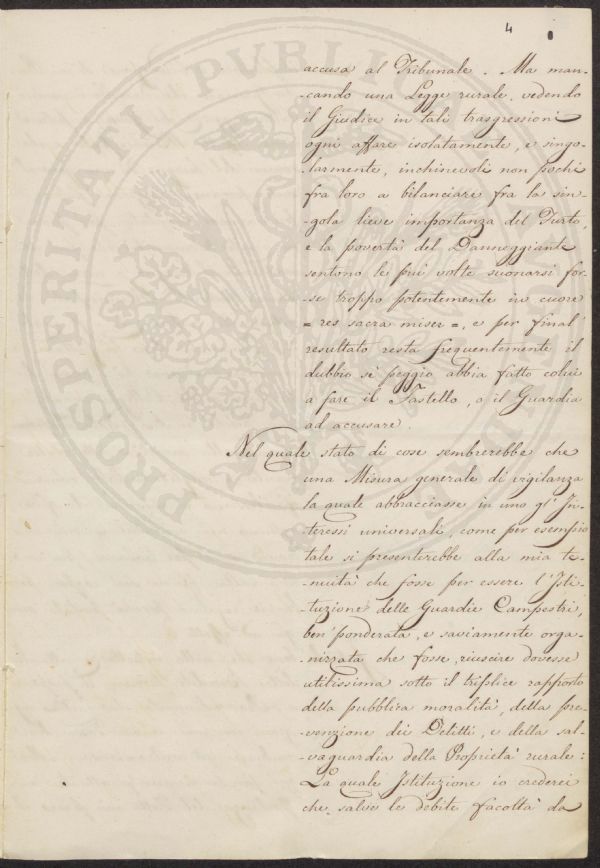 4
accusa al Tribunale. Ma man-
-cando una Legge rurale, vedendo
il Giudice in tali trasgressioni
ogni affare isolatamente, e singo-
-larmente, inchinevoli non pochi
fra loro a bilanciare fra la sin-
-gola lieve importanza del Furto,
e la povertà del Danneggiante
sentono le più volte suonarsi for-
-se troppo potentemente in cuore
= res sacra miser =, e per final
resultato resta frequentemente il
dubbio se peggio abbia fatto colui
a fare il Fastello, o il Guardia
ad accusare.
Nel quale stato di cose sembrerebbe che
una Misura generale di vigilanza
la quale abbracciasse in uno gl'In-
teressi universali, come per esempio
tale si presenterebbe alla mia te-
nuità che fosse per essere l'Isti-
-tuzione delle Guardie Campestri,
ben ponderata, e saviamente orga-
-nizzata che fosse, riuscire dovesse
utilissima sotto il triplice rapporto
della pubblica moralità, della pre-
-venzione dei Delitti, e della sal-
-vaguardia della Proprietà rurale:
La quale Istituzione io crederei
che salve le debite facoltà da
PROSPERITATI PVBLI